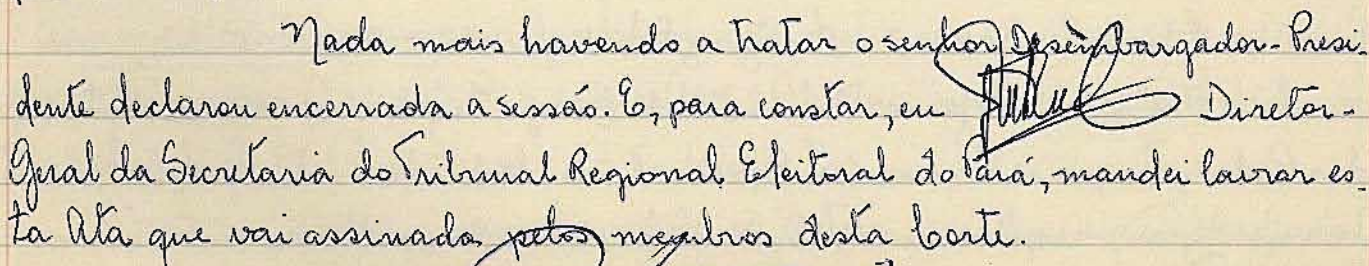 Nada mais havendo a tratar o senhor Desembargador-Presi-
dente declarou encerrada a sessão. E, para constar, eu Diretor-
Geral da Secretaria do Tribunal Regional Eleitoral do Pará, mandei lavrar es-
ta Ata que vai assinada pelos membros desta Corte.